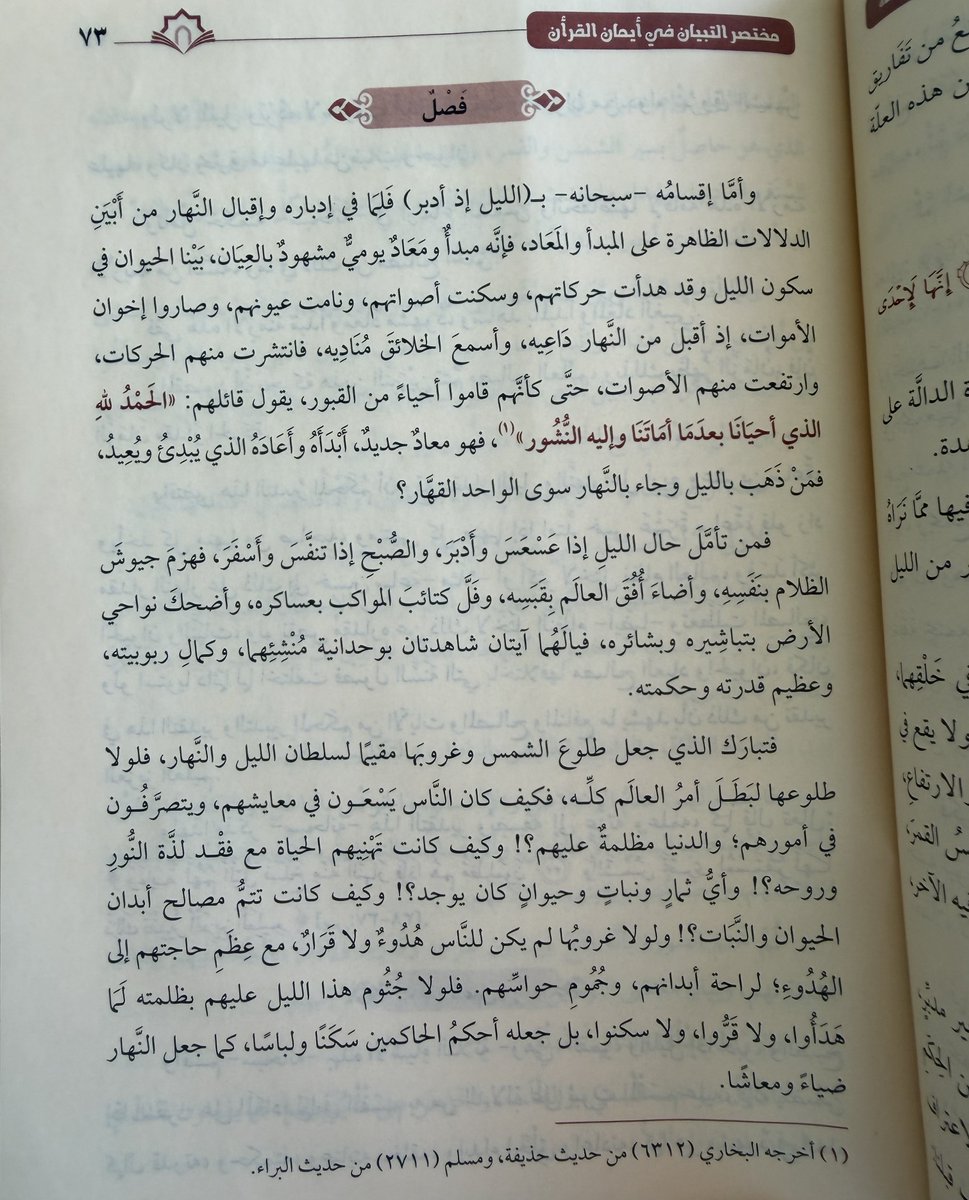 مختصر التبيان في أيمان القرآن
٧٣
فَصْلٌ
وأمَّا إقسامُه -سبحانه- بـ(الليل إذ أدبر) فَلِمَا في إدباره وإقبال النَّهار من أَبْيَنِ
الدلالات الظاهرة على المبدأ والمَعَاد، فإنَّه مبدأٌ ومَعَادٌ يوميٌّ مشهودٌ بالعِيَان، بَيْنا الحيوان في
سكون الليل وقد هدأت حركاتهم، وسكنت أصواتهم، ونامت عيونهم، وصاروا إخوان
الأموات، إذ أقبل من النَّهار دَاعِيه، وأسمعَ الخلائقَ مُنَادِيه، فانتشرت منهم الحركات،
وارتفعت منهم الأصوات، حتَّى كأنَّهم قاموا أحياءً من القبور، يقول قائلهم: «الحَمْدُ للهِ
الذي أحيَانَا بعدَمَا أمَاتَنَا وإليه النُّشُور»(١)، فهو معادٌ جديدٌ، أَبْدَأَهُ وأَعَادَهُ الذي يُبْدِئُ ويُعِيدُ،
فمَنْ ذَهَب بالليل وجاء بالنَّهار سوى الواحد القهَّار؟
فمن تأمَّلَ حال الليلِ إذا عَسْعَسَ وأَدْبَرَ، والصُّبْحِ إذا تنفَّسَ وأَسْفَرَ، فهزمَ جيوشَ
الظلام بنَفَسِهِ، وأضاءَ أُفُقَ العالَم بِقَبَسِه، وفَلَّ كتائبَ المواكب بعساكره، وأضحكَ نواحي
الأرض بتباشِيره وبشائره، فيالَهُما آيتان شاهدتان بوحدانية مُنْشِئِهِما، وكمالِ ربوبيته،
وعظيم قدرته وحكمته.
فتبارَك الذي جعل طلوعَ الشمس وغروبَها مقيمًا لسلطان الليل والنَّهار، فلولا
طلوعها لبَطَلَ أمرُ العالَم كلِّه، فكيف كان النَّاس يَسْعَون في معايشهم، ويتصرَّفُون
في أمورهم؛ والدنيا مظلمةٌ عليهم؟! وكيف كانت تَهْنِيهم الحياة مع فقْد لذَّة النُّورِ
وروحه؟! وأيُّ ثمارٍ ونباتٍ وحيوانٍ كان يوجد؟! وكيف كانت تتمُّ مصالح أبدان
الحيوان والنَّبات؟! ولولا غروبُها لم يكن للنَّاس هُدُوءٌ ولا قَرَارٌ، مع عِظَمِ حاجتهم إلى
الهُدُوءِ؛ لراحة أبدانهم، وجُمُومِ حواسِّهم. فلولا جُثُوم هذا الليل عليهم بظلمته لَمَا
هَدَأُوا، ولا قَرُّوا، ولا سكنوا، بل جعله أحكمُ الحاكمين سَكَنًا ولباسًا، كما جعل النَّهار
ضياءً ومعاشًا.
(١) أخرجه البخاري (٦٣١٢) من حديث حذيفة، ومسلم (٢٧١١) من حديث البراء.
عُ من تَفَاريق
ن هذه العلّة
إِنَّهَا لَإِحْدَى
ة الدالَّة على
سدة.
فيها ممَّا نَرَاهُ
ر من الليل
في خَلْقِهِما،
ولا يقع في
والارتفاعِ،
سُ القمرَ،
يه الآخر،